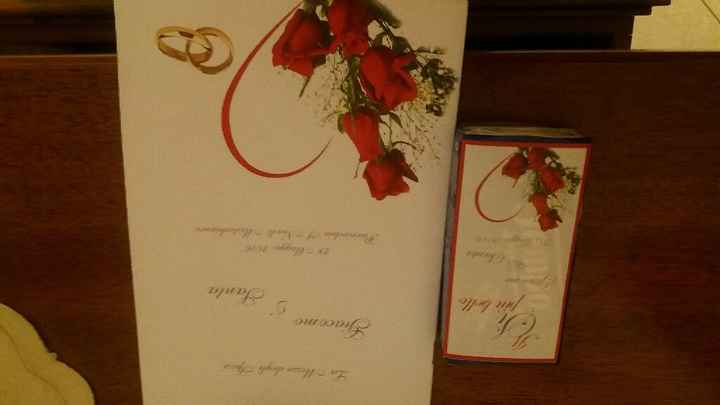 La Messa degli Sposi
Giacomo
&
Santa
28 Maggio 2016
Parrocchia S. Nicola
Il Sì
più bello
Giacomo
&
Santa
28 Maggio 2016